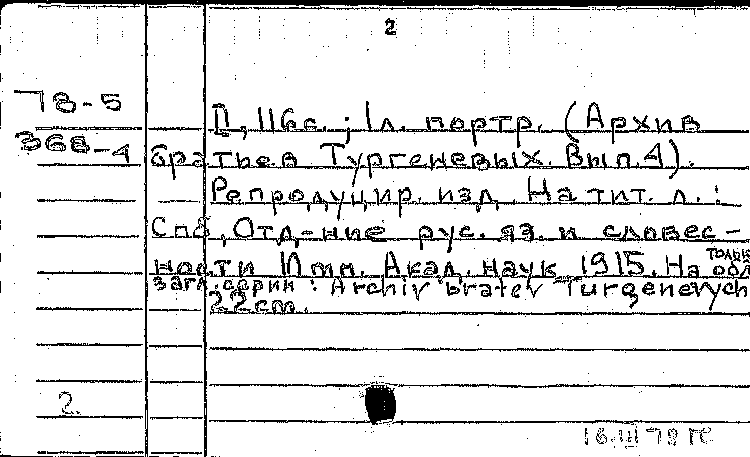 2
78-5
368-4
II, 116с.; 1л. портр. (Архив
братьев Тургеневых. Вып.4).
Репродуцир. изд. На тит. л.:
Спб, Отд-ние рус. яз. и словес-
ности Имп. Акад. наук 1915. На обл. только
загл. серии: Archiv bratev Turgenevych
22см.
2.
16.III 78